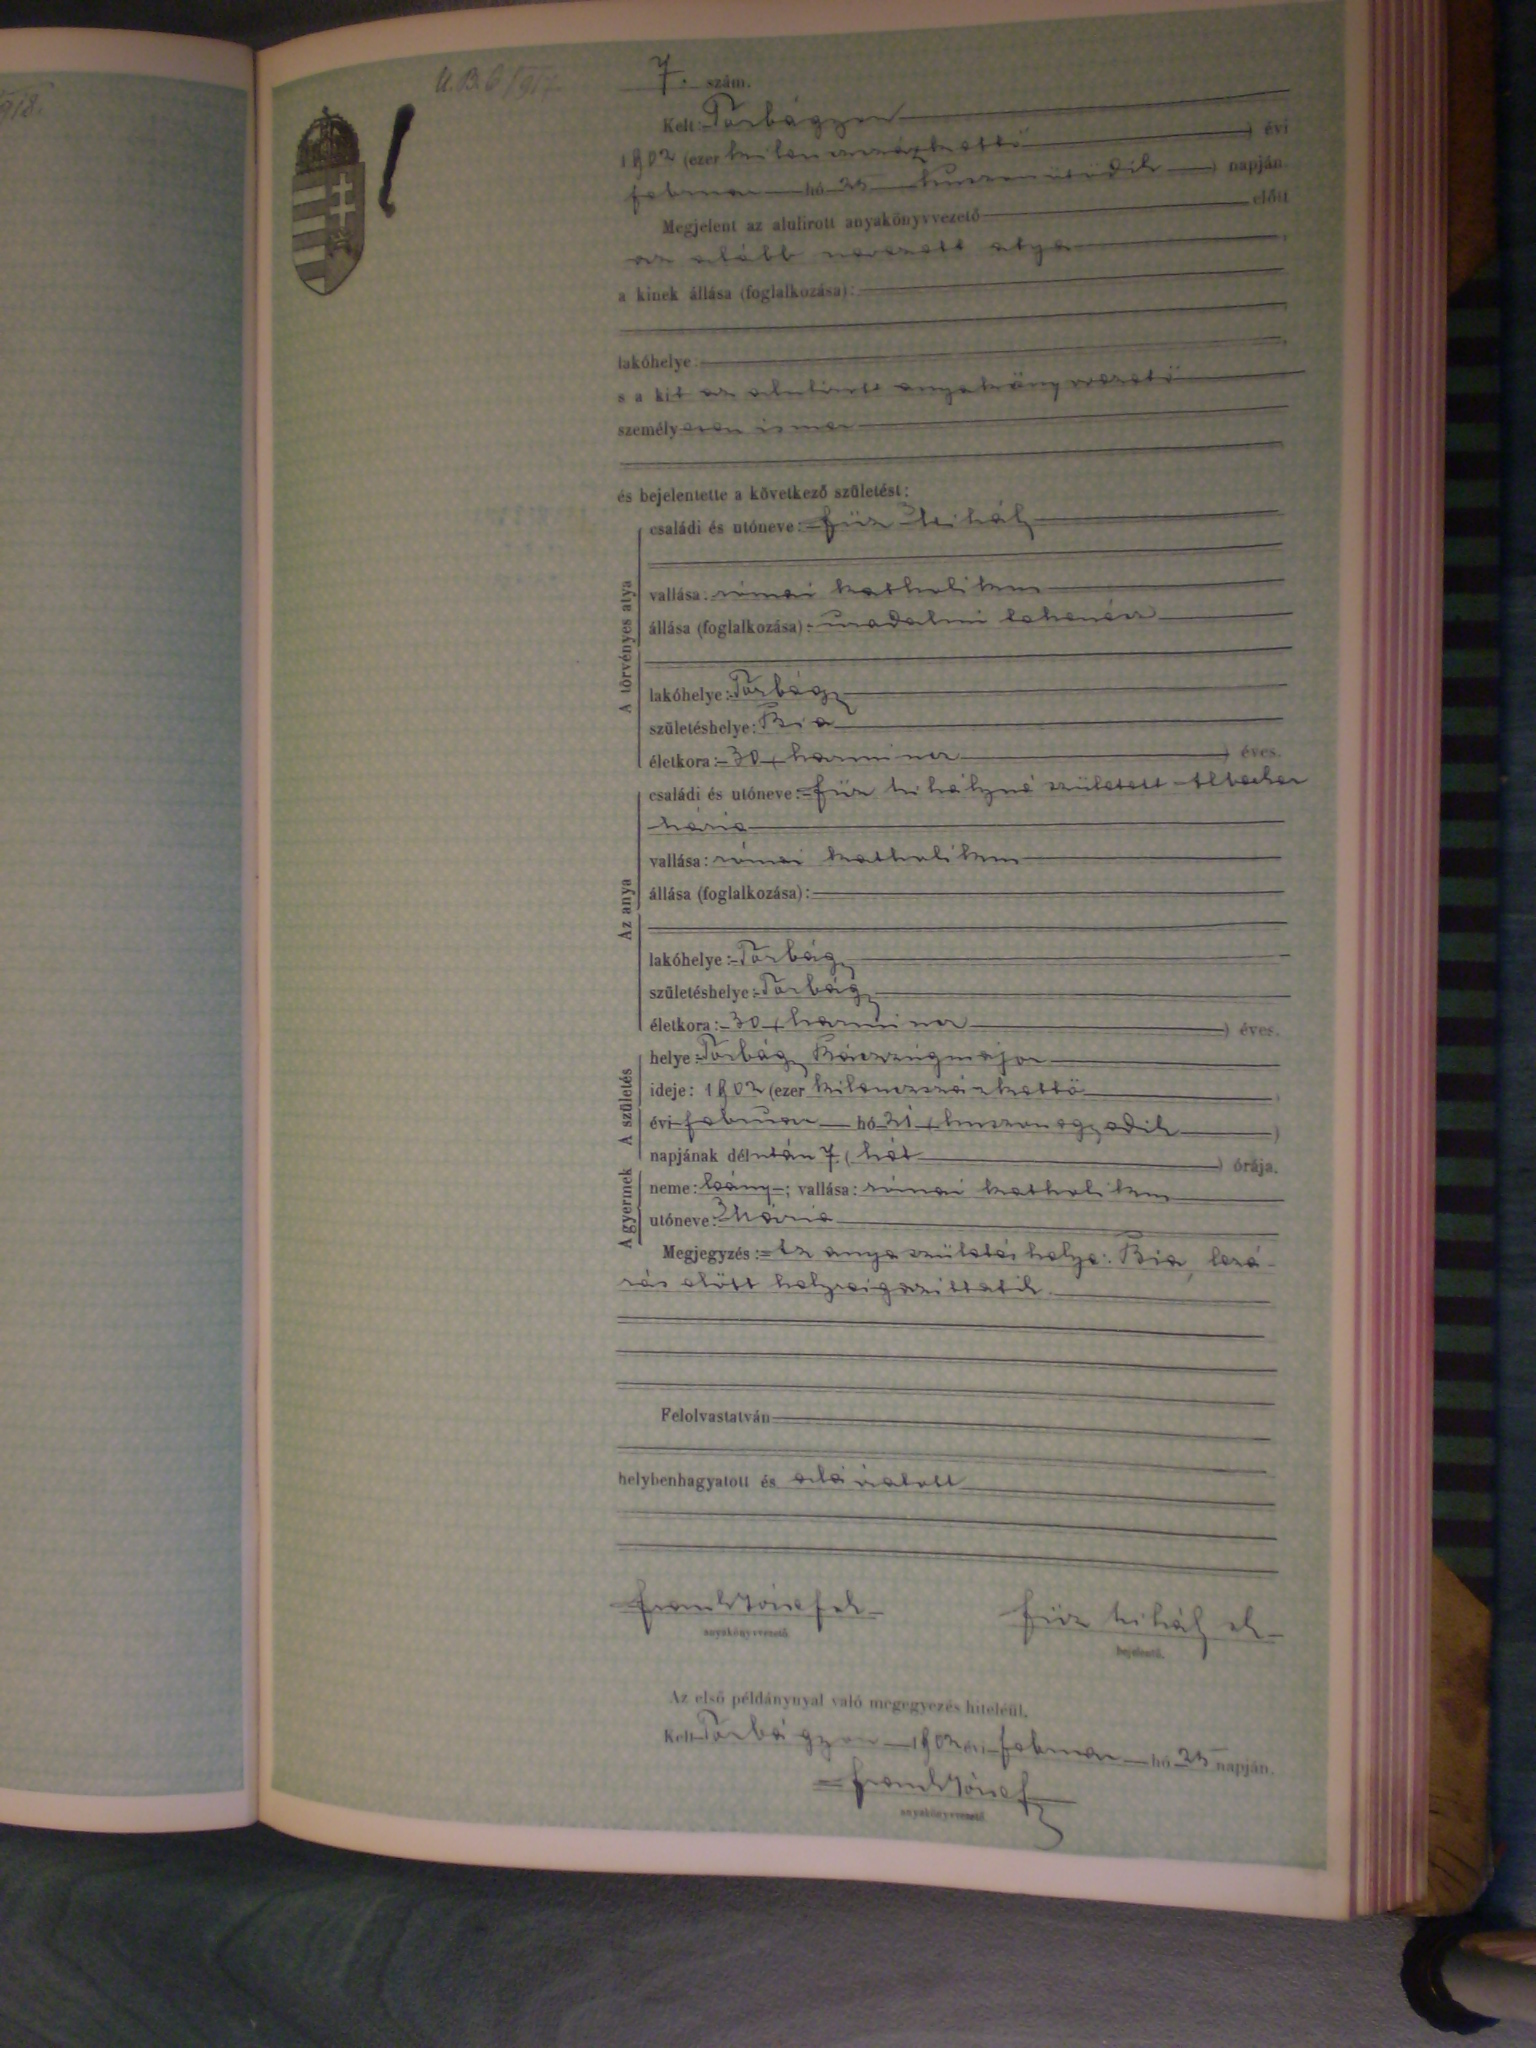 918.
U.B. 6/917
7. szám.
Kelt: Torbágyon
1902 (ezer kilenczszázkettő ) évi
februar hó 25 huszonötödik ) napján
Megjelent az alulirott anyakönyvvezető előtt
az alább nevezett atya
a kinek állása (foglalkozása):
lakóhelye:
s a kit az alulirott anyakönyvvezető
személyesen ismer
és bejelentette a következő születést:
A törvényes atya
családi és utóneve: Für Mihály
vallása: római katholikus
állása (foglalkozása): uradalmi tehenész
lakóhelye: Torbágy
születéshelye: Bia
életkora: 30 ( harmincz ) éves.
Az anya
családi és utóneve: Für Mihályné született
Mária
vallása: római katholikus
állása (foglalkozása):
lakóhelye: Torbágy
születéshelye: Torbágy
életkora: 30 ( harmincz ) éves.
A születés
helye: Torbágy
ideje: 1902 (ezer kilenczszázkettő
évi februar hó 21 ( huszonegyedik )
napjának délután 7 ( hét ) órája.
A gyermek
neme: leány ; vallása: római katholikus
utóneve: Mária
Megjegyzés: Az anya születéshelye: Bia, lezá-
rás előtt helyreigazittatik.
Felolvastatván
helybenhagyatott és aláiratott
Frank József sk
anyakönyvvezető
Für Mihály sk
bejelentő.
Az első példánynyal való megegyezés hiteléül.
Kelt Torbágyon 1902 évi februar hó 25 napján.
Frank József
anyakönyvvezető